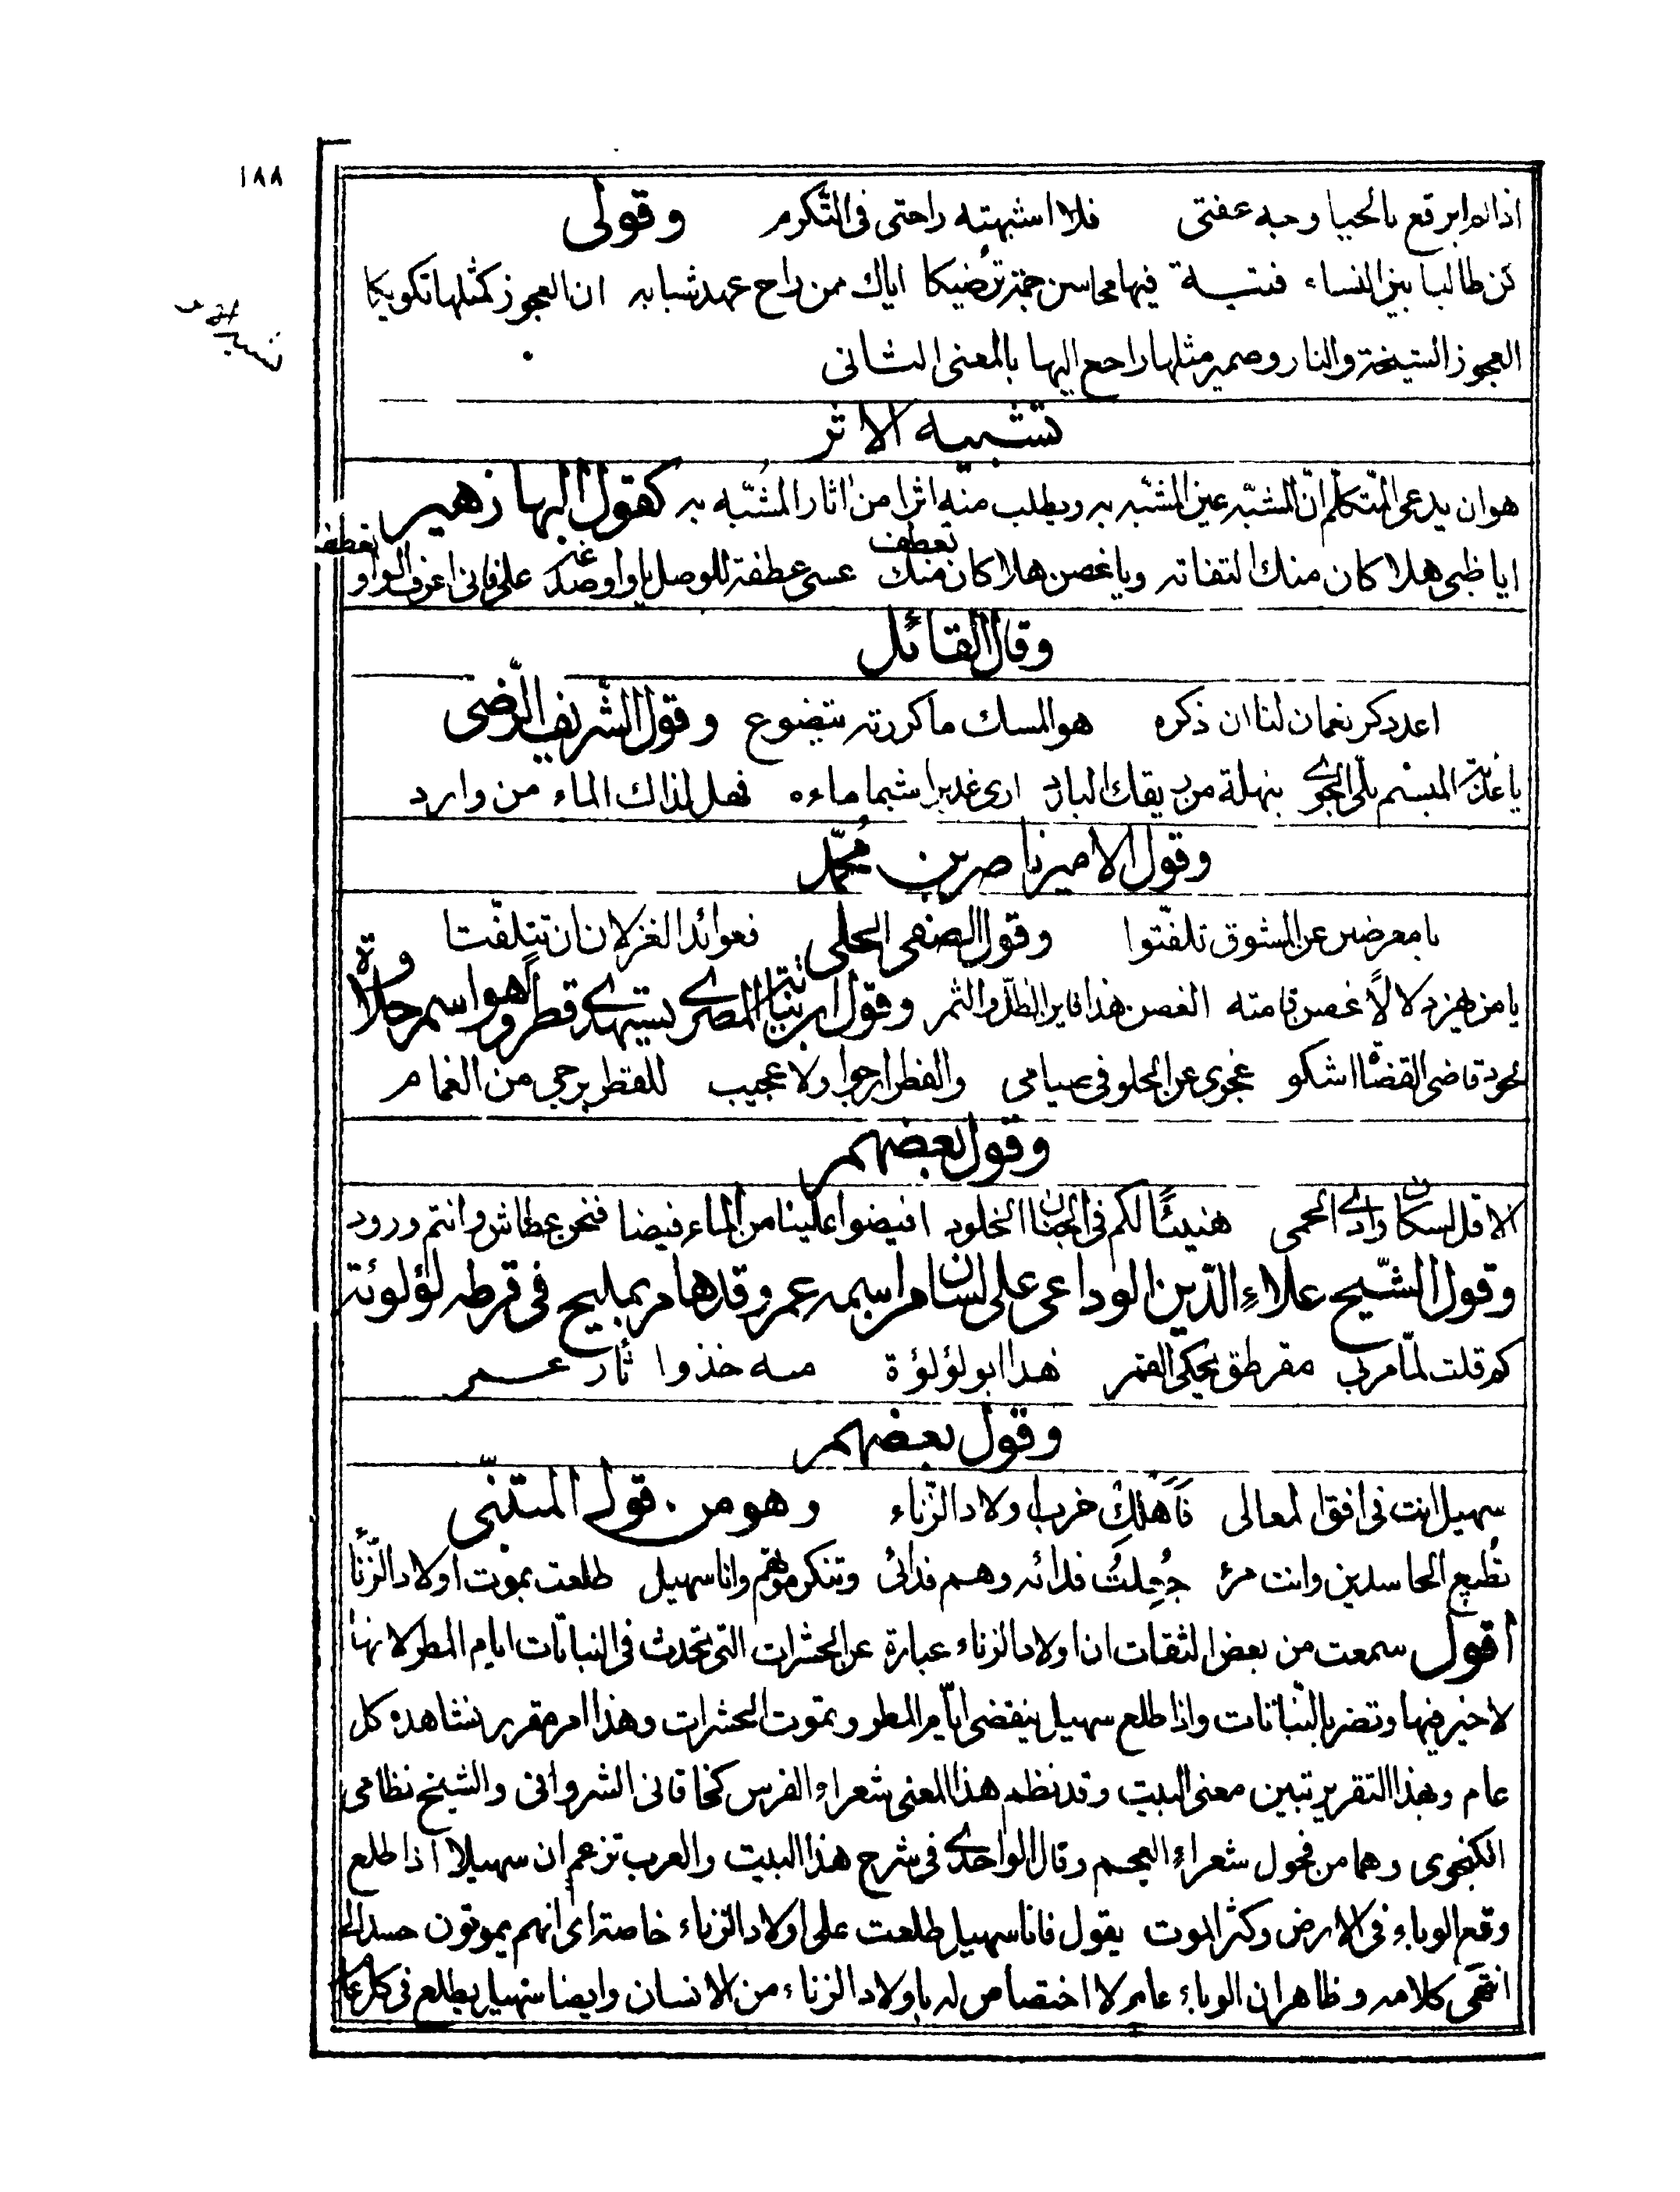 ١٨٨
اذا انا لم ابرقع بالحيا وجه عفتى فلا اشبهته راحتى فى التّكرم وقولى
كن طالبا بين النساء فتية فيها محاسن جمة ترضيكا اياك ممن راح عهد شبابه ان العجوز كمثلها تكويكا
العجوز الشيخة والنار وضمير مثلها راجع اليها بالمعنى الثانى
تشبيه الاثر
هو ان يدعى المتكلّم انّ المشبّه عين المشبّه به ويطلب منه اثرا من اثار المشبّه به كقول البها زهير
ايا ظبى هلا كان منك التفاته ويا غصن هلا كان منك تعطف عسى عطفة للوصل يا واو صدغه علىّ فانى اعرف الواو تعطف
وقال القائل
اعد ذكر نعمان لنا ان ذكره هو المسك ما كررته يتضوع وقول الشّريف الرّضى
يا عذبة المبسم بلّى الجوى بنهلة من ريقك البارد ارى غديرا شبما ماءه فهل لذاك الماء من وارد
وقول الامير ناصر بن محمّد
يا معرضين عن المشوق تلفّتوا فعوائد الغزلان ان تتلفّتا وقول الصفى الحلى
يا من يهز دلالًا غصن قامته الغصن هذا فاين الظلّ والثمر وقول ابن نباتة المصرى يستهدى قطرا وهو اسم حلاوة
لجود قاضى القضاة اشكو عجزى عن الحلو فى صيامى والقطر ارجو ولا عجيب للقطر يرجى من الغمام
وقول بعضهم
الا قل لسكان وادى الحمى هنيئًا لكم فى الجنان الخلود افيضوا علينا من الماء فيضا فنحن عطاش وانتم ورود
وقول الشّيخ علاء الدّين الوداعى على لسان من اسمه عمر وقد هام بمليح فى قرطه لؤلوئة
كم قلت لمّا مر بى مقرطق يحكى القمر هذا ابو لؤلؤة منه خذوا ثار عمر
وقول بعضهم
سهيل انت فى افق المعالى فاهلك خرب اولاد الزّناء وهو من قول المتنبّى
تُطيع الحاسدين وانت مرء جُعِلتُ فدائه وهم فدائى وتنكر موتهم وانا سهيل طلعت بموت اولاد الزّناء
اقول سمعت من بعض الثقات ان اولاد الزناء عبارة عن الحشرات التى تحدث فى النباتات ايام المطر لانها
لا خير فيها وتضر بالنّباتات واذا طلع سهيل ينقضى ايّام المطر وبموت الحشرات وهذا امر مقرر نشاهده كل
عام وبهذا التقرير تبين معنى البيت وقد نظم هذا المعنى شعراء الفرس كخاقانى الشروانى والشيخ نظامى
الكنجوى وهما من فحول شعراء العجم وقال الواحدى فى شرح هذا البيت والعرب تزعم ان سهيلا اذا طلع
وقع الوباء فى الارض وكثر الموت يقول فانا سهيل طلعت على اولاد الزناء خاصة اى انهم يموتون حسدا لى
انتهى كلامه وظاهر ان الوباء عام لا اختصاص له باولاد الزناء من الانسان وايضا سهيل يطلع فى كل عام